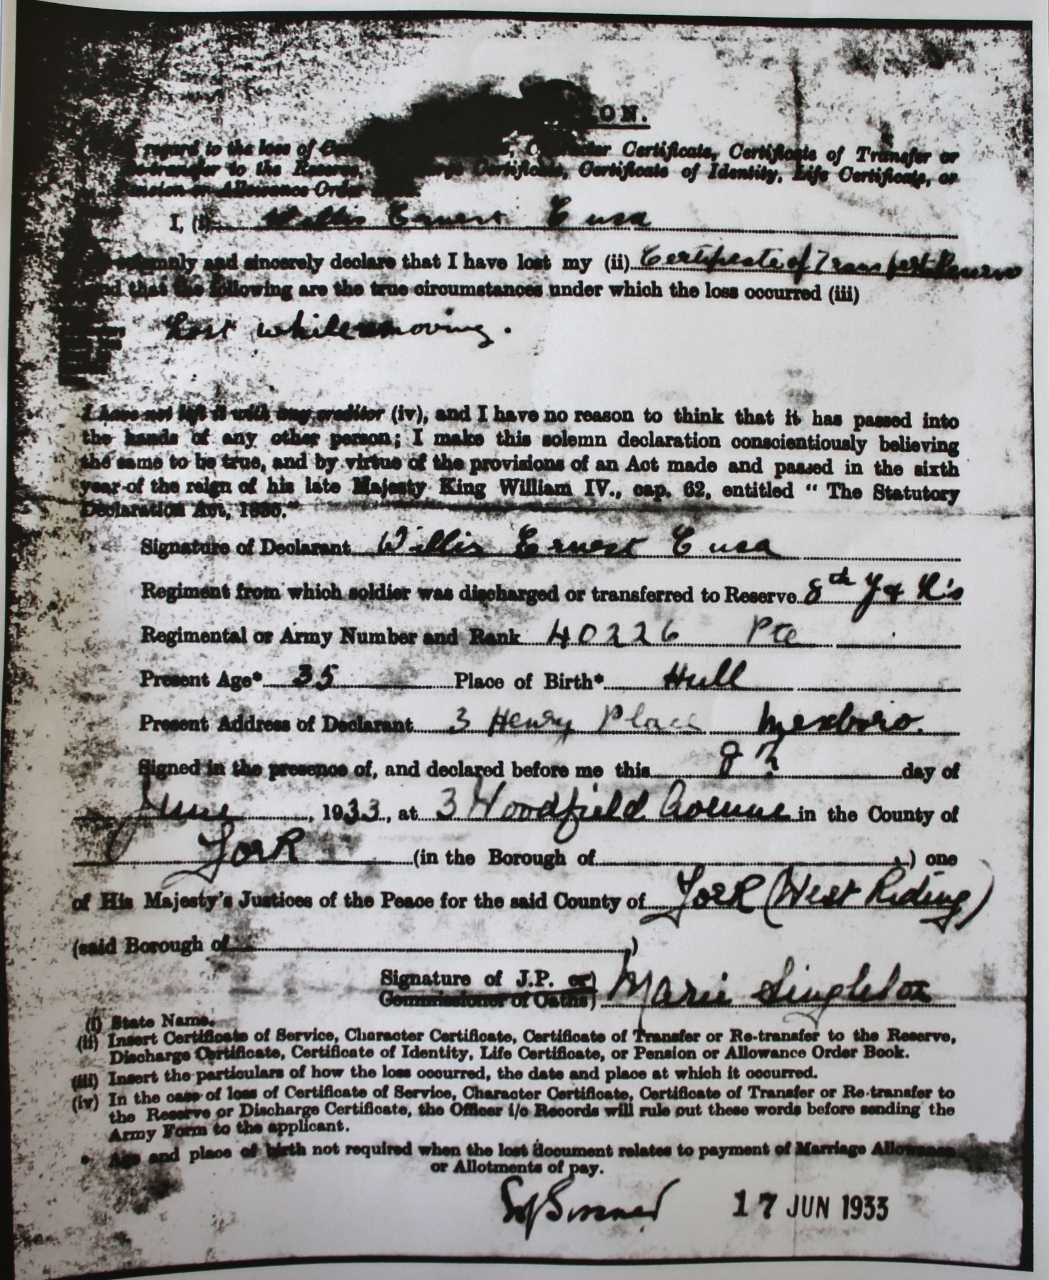 ON.
regard to the loss of Character Certificate, Certificate of Transfer or
Re-transfer to the Reserve, Certificate, Certificate of Identity, Life Certificate, or
Pension or Allowance Order
I, (i) Willis Ernest Cusa
solemnly and sincerely declare that I have lost my (ii) Certificate of Transfer to Reserve
and that the following are the true circumstances under which the loss occurred (iii)
Lost while moving.
I have not left it with any creditor (iv), and I have no reason to think that it has passed into
the hands of any other person; I make this solemn declaration conscientiously believing
the same to be true, and by virtue of the provisions of an Act made and passed in the sixth
year of the reign of his late Majesty King William IV., cap. 62, entitled "The Statutory
Declaration Act, 1835."
Signature of Declarant Willis Ernest Cusa
Regiment from which soldier was discharged or transferred to Reserve 8th Y & L's
Regimental or Army Number and Rank 40226 Pte
Present Age* 35 Place of Birth* Hull
Present Address of Declarant 3 Henry Place Mexboro.
Signed in the presence of, and declared before me this 8th day of
June, 1933, at 3 Woodfield Avenue in the County of
York (in the Borough of ) one
of His Majesty's Justices of the Peace for the said County of York (West Riding)
(said Borough of )
Signature of J.P. or
Commissioner of Oaths) Marie Singleton
(i) State Name.
(ii) Insert Certificate of Service, Character Certificate, Certificate of Transfer or Re-transfer to the Reserve,
Discharge Certificate, Certificate of Identity, Life Certificate, or Pension or Allowance Order Book.
(iii) Insert the particulars of how the loss occurred, the date and place at which it occurred.
(iv) In the case of loss of Certificate of Service, Character Certificate, Certificate of Transfer or Re-transfer to
the Reserve or Discharge Certificate, the Officer i/c Records will rule out these words before sending the
Army Form to the applicant.
* Age and place of birth not required when the lost document relates to payment of Marriage Allowance
or Allotments of pay.
17 JUN 1933